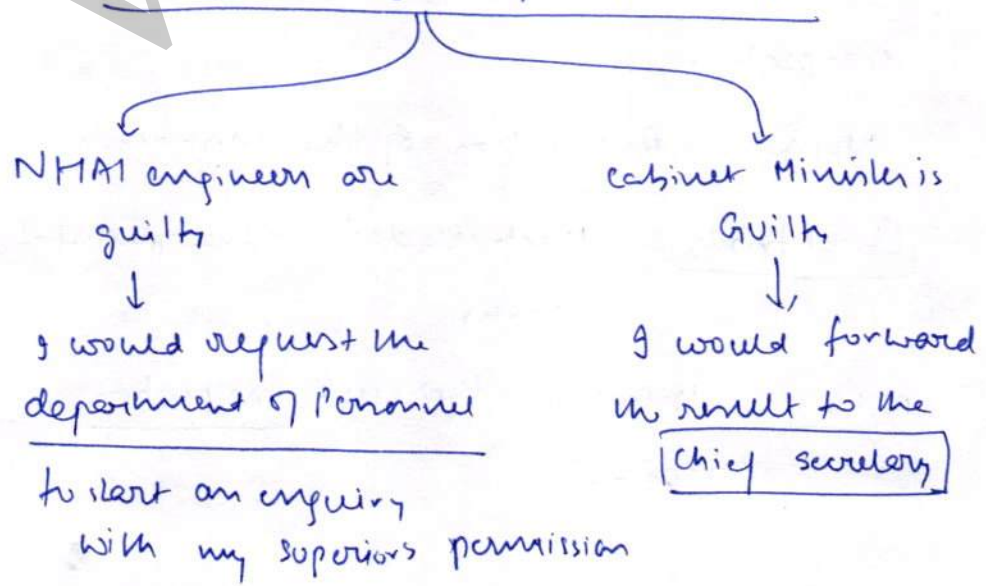 NHAI engineers are
guilty
I would request the
department of Personnel
to start an enquiry
with my superiors permission
cabinet Minister is
Guilty
I would forward
the result to the
Chief secretary